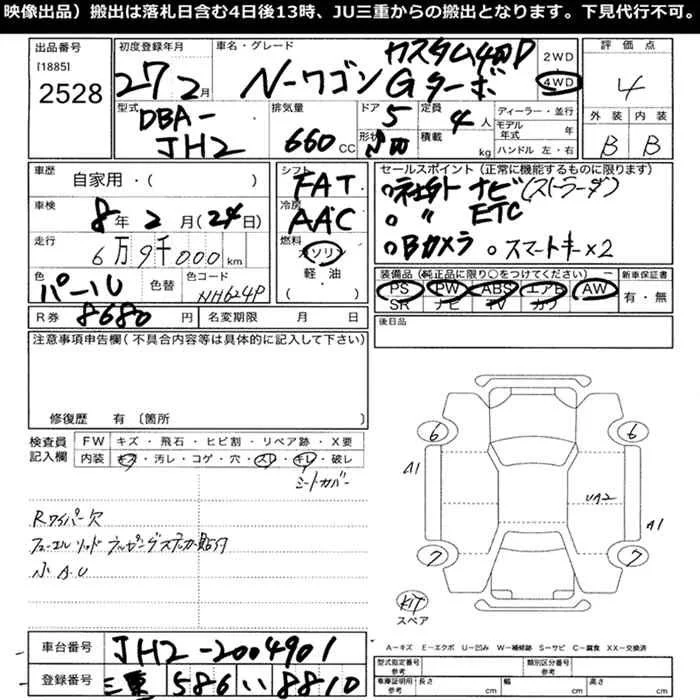 映像出品）搬出は落札日含む4日後13時、JU三重からの搬出となります。下見代行不可。
出品番号
[1885]
2528
初度登録年月
27年2月
車名・グレード
N-ワゴン Gターボ
カスタム4WD
2WD
4WD
評価点
4
外装 内装
B B
型式
DBA-
JH2
排気量
660 CC
ドア
5
形状
定員
4人
積載
kg
ディーラー・並行
モデル年式 年
ハンドル 左・右
車歴
自家用・( )
車検
8年2月(24日)
走行
6万9千000km
色
パール
色替
色コード
NH624P
シフト
FAT
冷房
AAC
燃料
ガソリン
軽・油
( )
セールスポイント（正常に機能するものに限ります）
○社外 ナビ(ストラーダ)
○ 〃 ETC
○Bカメラ ○スマートキー×2
装備品（純正品に限り○をつけてください）
PS PW ABS エアB AW
SR ナビ TV カワ
新車保証書
有・無
R券 8680円
名変期限 月 日
後日品
注意事項申告欄（不具合内容等は具体的に記入して下さい）
修復歴 有〔箇所 〕
検査員記入欄
FW キズ・飛石・ヒビ割・リペア跡・X要
内装 キズ・汚レ・コゲ・穴・スレ・キレ・破レ
シートカバー
Rワイパー欠
フューエルリッド ラッピングステッカー貼付
小A.U
6
6
A1
UA2
A1
7
7
KIT
スペア
A－キズ E－エクボ U－凹み W－補修跡 S－サビ C－腐食 XX－交換済
車台番号
JH2-2004901
登録番号
三重 586 い 8810
型式指定番号
参考
類別区分番号
参考
車庫証明用
参考
長さ cm
幅 cm
高さ cm